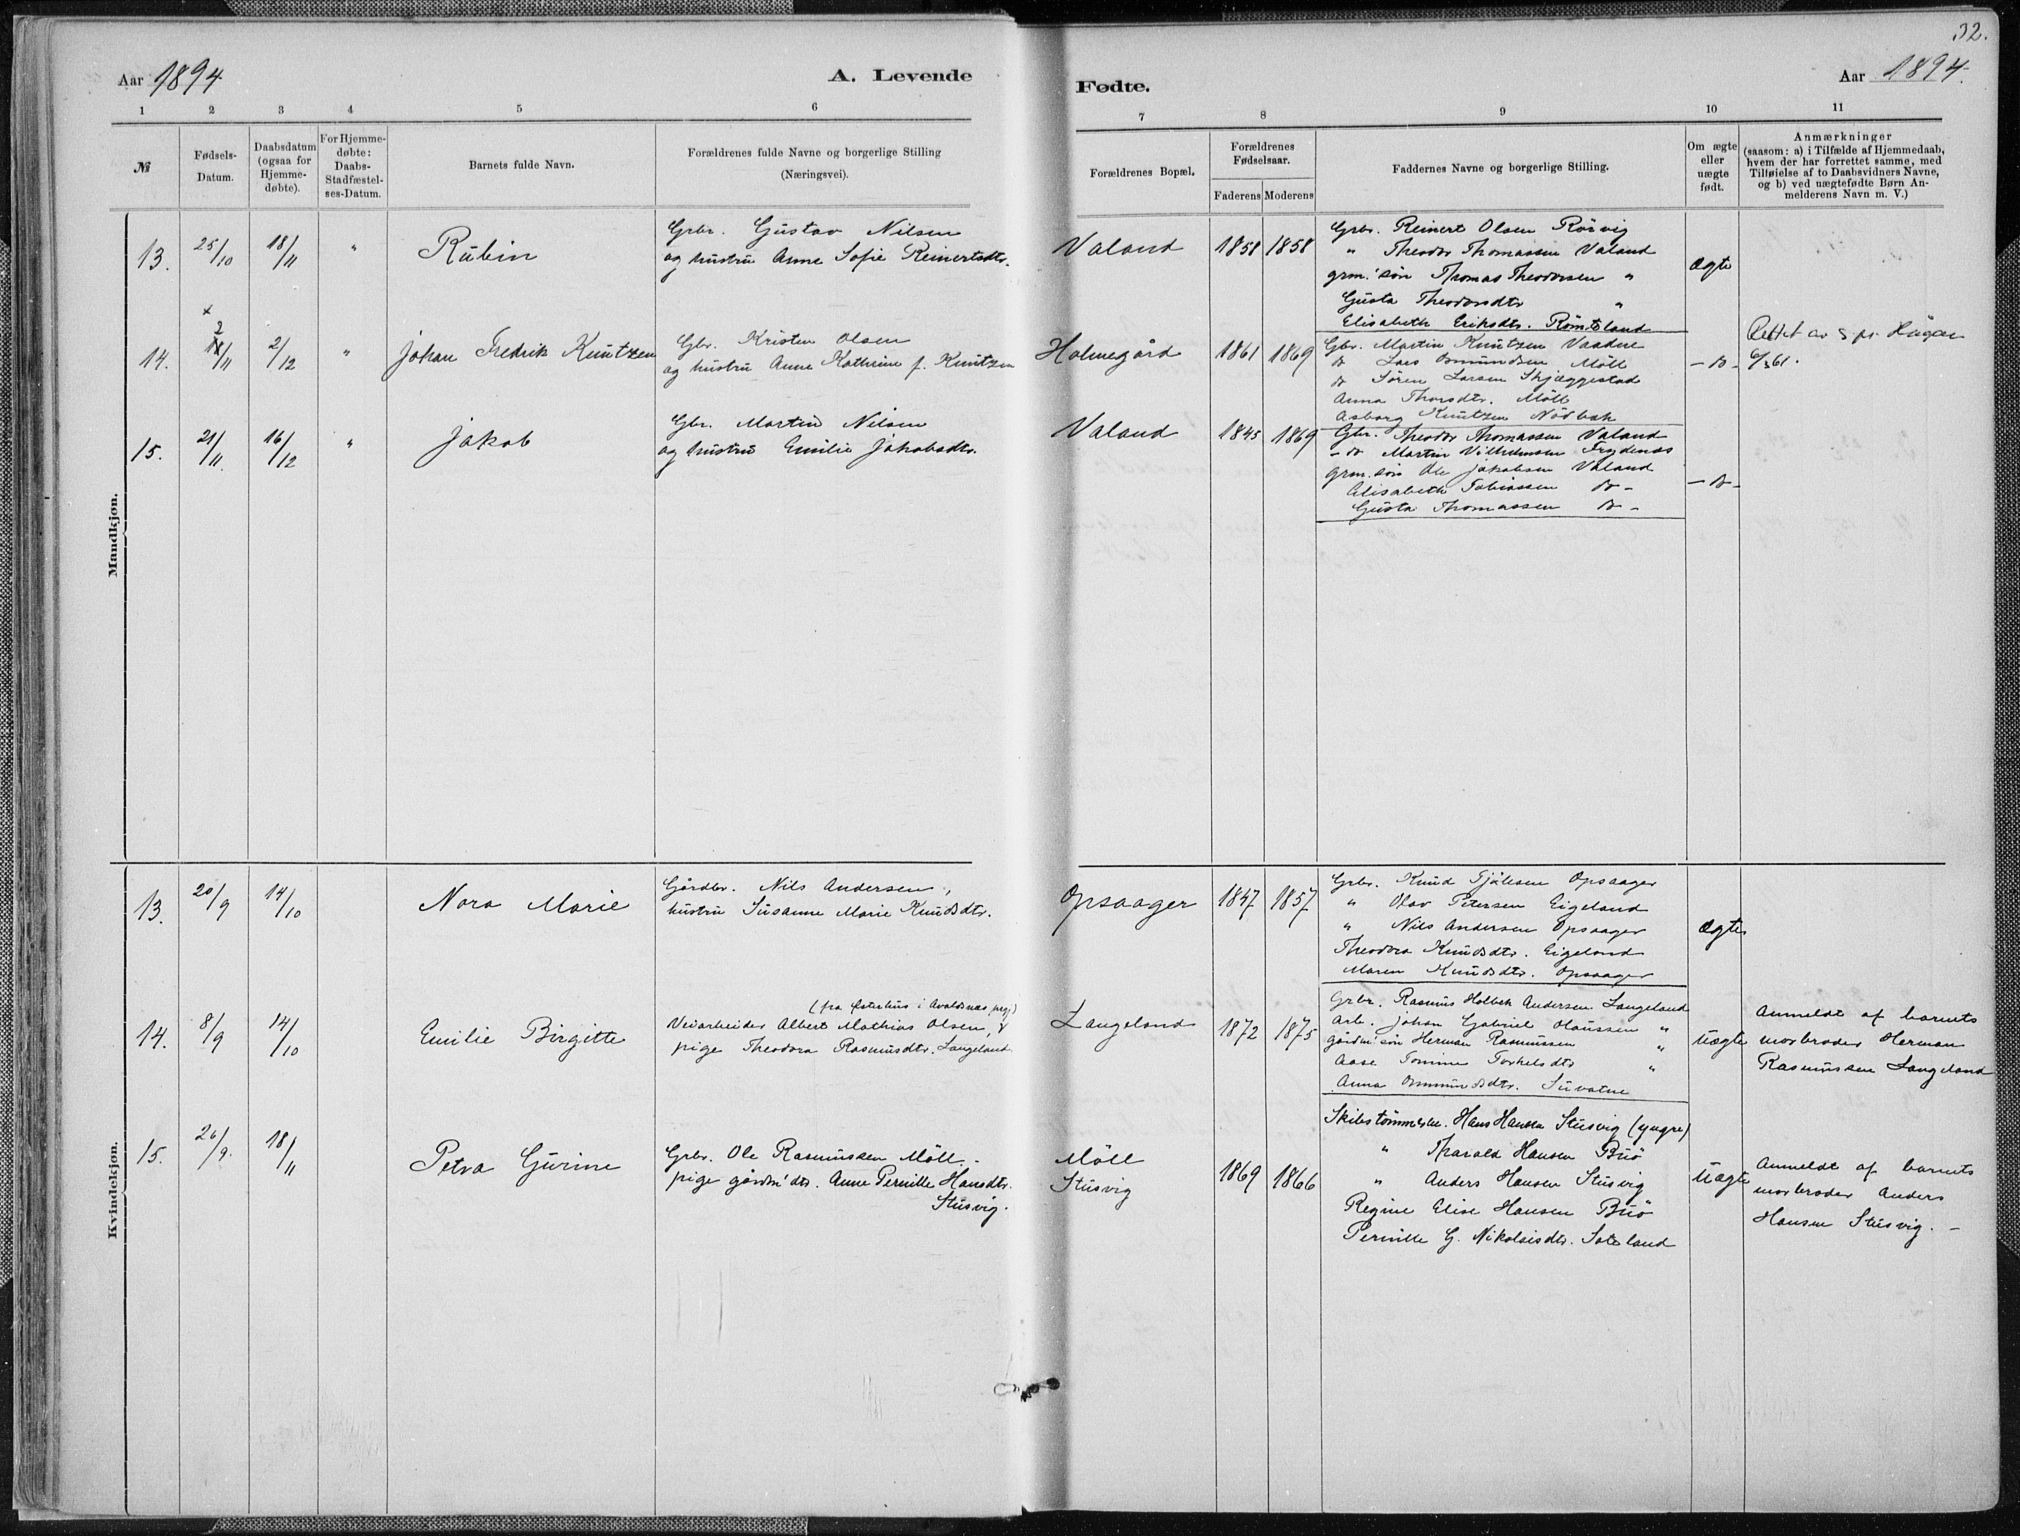 32.
Aar 1894
A. Levende
Fødte.
Aar 1894.
1 2 3 4 5 6 7 8 9 10 11
№
Fødsels-
Datum.
Daabsdatum
(ogsaa for
Hjemme-
døbte).
For Hjemme-
døbte:
Daabs-
Stadfæstel-
ses-Datum.
Barnets fulde Navn.
Forældrenes fulde Navne og borgerlige Stilling
(Næringsvei).
Forældrenes Bopæl.
Forældrenes
Fødselsaar.
Faderens Moderens
Faddernes Navne og borgerlige Stilling.
Om ægte
eller
uægte
født.
Anmærkninger
(saasom: a) i Tilfælde af Hjemmedaab,
hvem der har forrettet samme, med
Tilføielse af to Daabsvidners Navne,
og b) ved uægtefødte Børn An-
melderens Navn m. V.)
Mandkjøn.
13. 25/10 18/11 " Rubin
Gbr. Gustav Nilsen
og hustru Anne Sofie Reinertsdtr.
Valand 1858 1858
Grbr. Reinert Olsen Rørvig
" Theodor Thomassen Valand
grm.'søn Thomas Theodorsen "
Gusta Theodorsdtr "
Elisabeth Eriksdtr. Rømtsland
ægte
14. x 2/11 2/12 " Johan Fredrik Knutzen
Gbr. Kristen Olsen
og hustru Anne Kathrine f. Knutzen
Holmegård 1861 1869
Gbr. Martin Knutzen Vaadne
D Lars Omundsen Möll
D Sören Larsen Skjæggestad
Anna Thorsdtr. Möll
Asborg Knutzen Nödbæk
- D -
Rettet av s.pr. Haugen
6/3 61.
15. 21/11 16/12 " Jakob
Gbr. Martin Nilsen
og hustru Emilie Jakobsdtr.
Valand 1845 1869
Gbr. Theodor Thomassen Valand
- D Martin Vilhelmsen Frydenæs
grm. søn Ole Jakobsen Valand
Elisabeth Tobiassen D -
Gusta Thomassen D -
- D -
Kvindekjøn.
13. 20/9 14/10 Nora Marie
Gårdbr. Nils Andersen,
hustru Susanne Marie Knudsdtr.
Opsaager 1847 1857
Grbr. Knud Tjölesen Opsaager
" Olav Petersen Eigeland
" Nils Andersen Opsaager
Theodora Knudsdtr. Eigeland
Maren Knudsdtr. Opsaager
ægte
14. 8/9 14/10 Emilie Birgitte
(fra Østrehus i Avaldsnæs prgj)
Veiarbeider Albert Mathias Olsen, &
pige Theodora Rasmusdtr. Langeland.
Langeland 1872 1875
Grbr. Rasmus Holbek Andersen Langeland
Arb. Johan Gabriel Hanssen "
gårdm'søn Herman Rasmussen "
Aase Tomine Torkelsdtr "
Anna Ommundsdtr. Suvatne
Uægte
Anmeldt af barnets
morbroder Herman
Rasmussen Langeland
15. 26/9. 18/11 Petra Gurine
Grbr. Ole Rasmussen Möll.
pige gårdm'dtr. Anne Pernille Hansdtr.
Stusvig.
Möll
Stusvig
1869 1866
Skibstømmerm. Hans Hansen Stusvig (yngre)
" Tharald Hansen Buö
" Anders Hansen Stusvig
Regine Elise Hansen Buö
Pernille G. Nikolaisdtr. Soteland
Uægte
Anmeldt af barnets
morbroder Anders
Hansen Stusvig. -